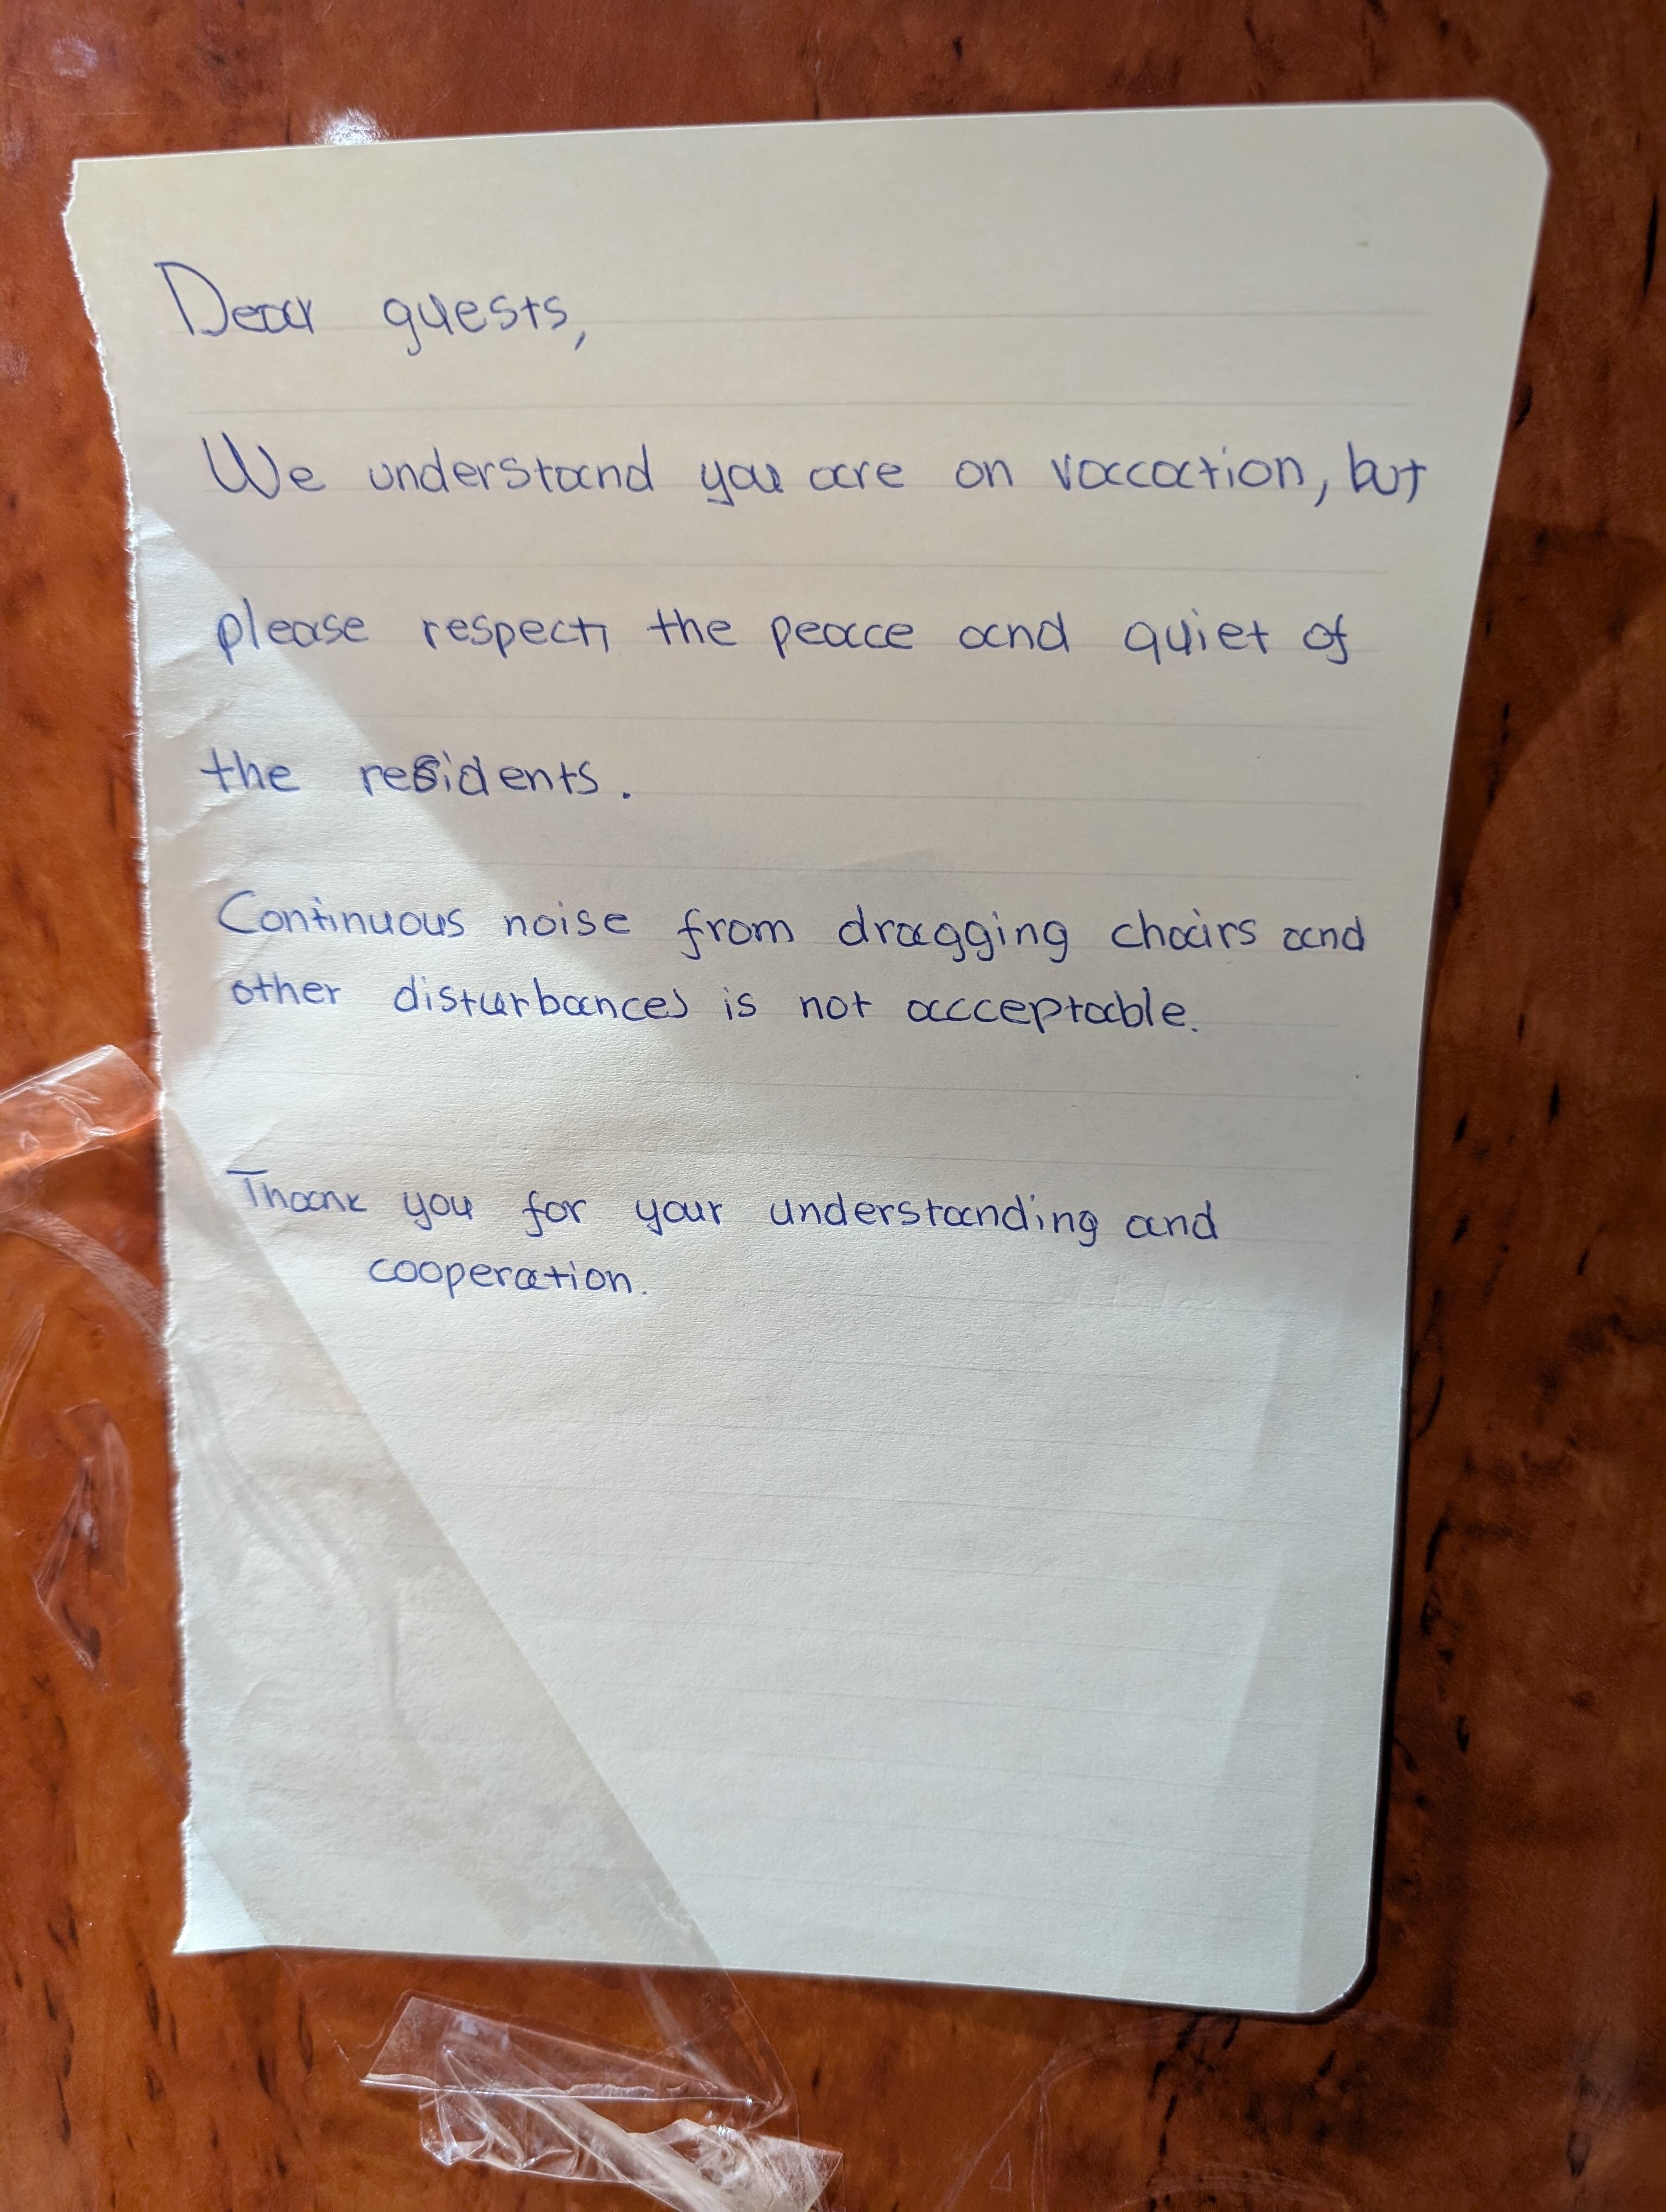 Dear guests,
We understand you are on vaccation, but
please respect the peace and quiet of
the residents.
Continuous noise from dragging chairs and
other disturbances is not acceptable.
Thank you for your understanding and
cooperation.